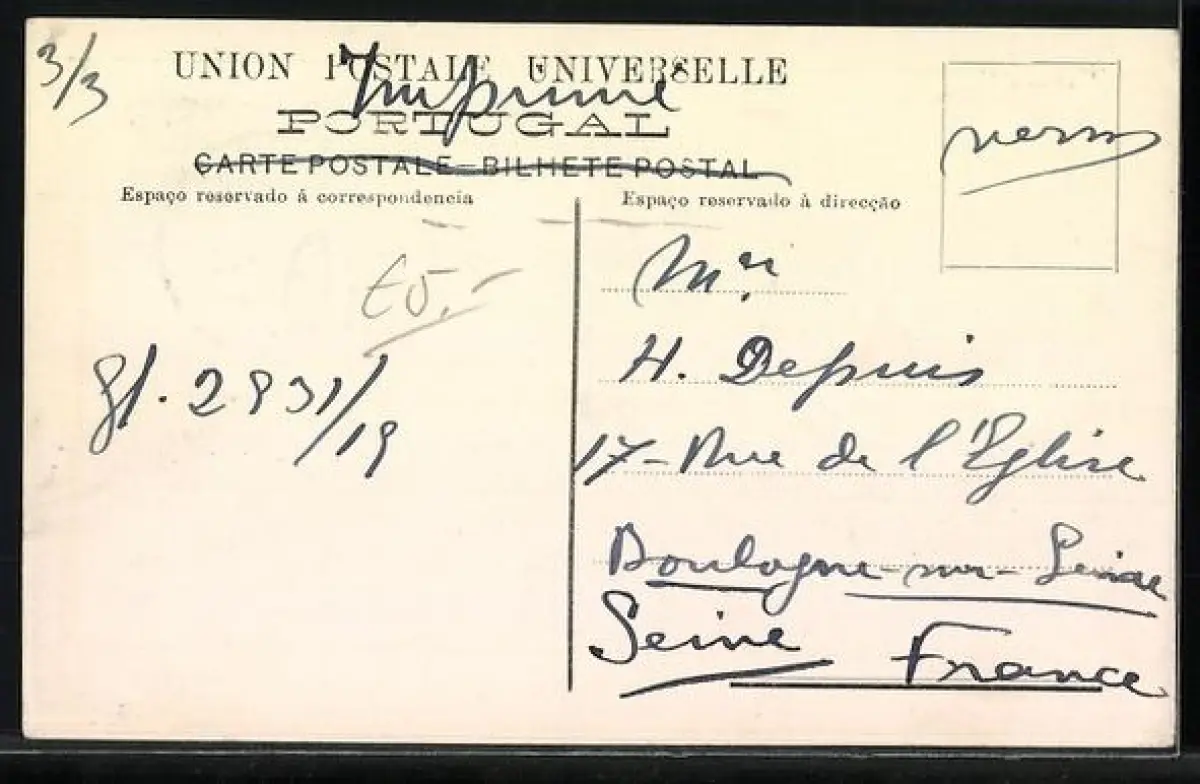 3/3
UNION POSTALE UNIVERSELLE
Imprimé
PORTUGAL
CARTE POSTALE - BILHETE POSTAL
Espaço reservado á correspondencia
Espaço reservado à direcção
Mr
H. Depuis
17 - Rue de l'Eglise
Boulogne-sur-Seine
Seine France
2831/19